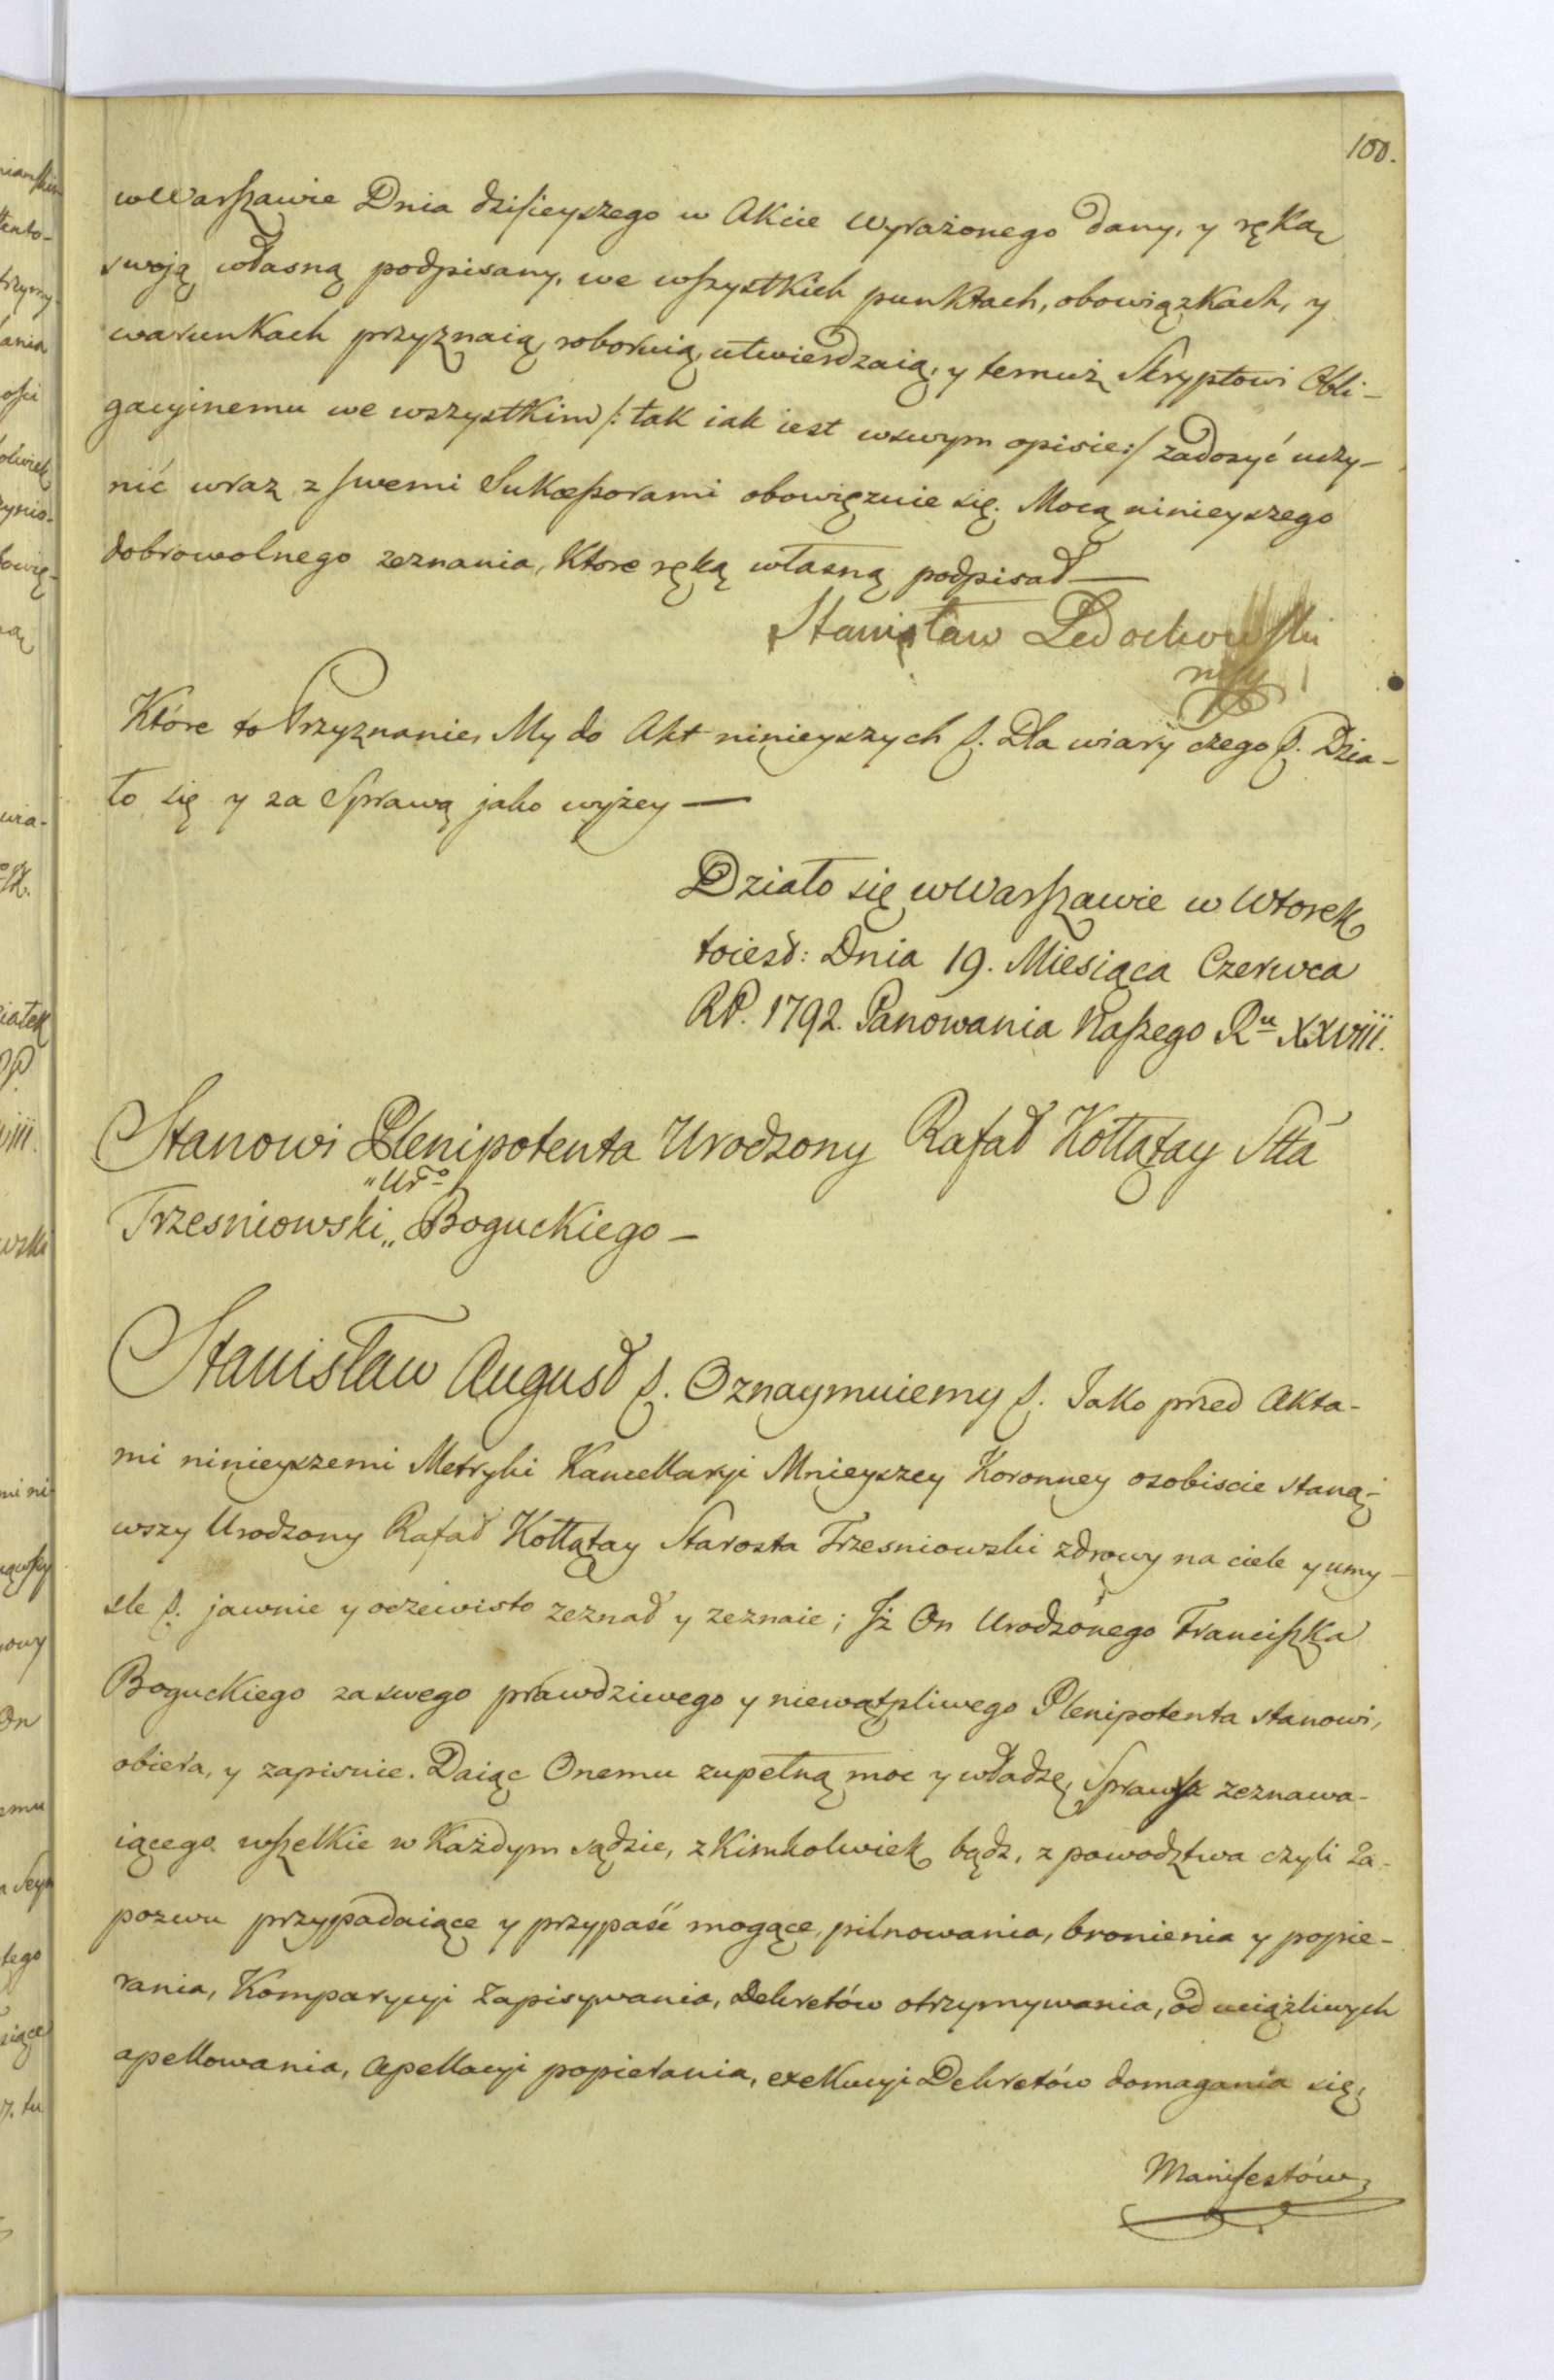 100.
w Warszawie Dnia dzisieyszego w Akcie wyrażonego dany, y ręką
swoją własną podpisany, we wszystkich punktach, obowiązkach, y
warunkach przyznaią, roboruią, utwierdzaią, y temuż Skryptowi Obli-
gacyinemu we wszystkim /: tak iak iest w swym opisie :/ zadosyć uczy-
nić wraz z swemi Sukcessorami obowięzuie się. Mocą ninieyszego
dobrowolnego zeznania, Ktore ręką własną podpisał —
Stanisław Ledochowski
mp
Które to Przyznanie, My do Akt ninieyszych &. Dla wiary czego &. Dzia-
ło się y za Sprawą jako wyżey —
Działo się w Warszawie w Wtorek
toiest: Dnia 19. Miesiąca Czerwca
RP. 1792. Panowania Naszego Ru XXVIII.
Stanowi Plenipotenta Urodzony Rafał Kołłątay Stta
"Uro
Trzesniowski „ Boguckiego —
Stanisław August &. Oznaymuiemy &. Jako przed Akta-
mi ninieyszemi Metryki Kancellaryi Mnieyszey Koronney osobiscie staną-
wszy Urodzony Rafał Kołłątay Starosta Trzesniowski zdrowy na ciele y umy-
sle &. jawnie y oczewisto zeznał y zeznaie; Iż On Urodzonego Franciszka
Boguckiego za swego prawdziwego y niewątpliwego Plenipotenta stanowi,
obiera, y zapisuie. Daiąc Onemu zupełną moc y władzę, Sprawa zeznawa-
iącego wszelkie w Każdym sądzie, z Kimkolwiek bądz, z powodztwa czyli za-
pozwu przypadaiące y przypaść mogące, pilnowania, bronienia y popie-
rania, Komparycyi zapisywania, Dekretów otrzymywania, od uciążliwych
apellowania, Apellacyi popierania, exekucyi Dekretów domagania się,
Manifestów